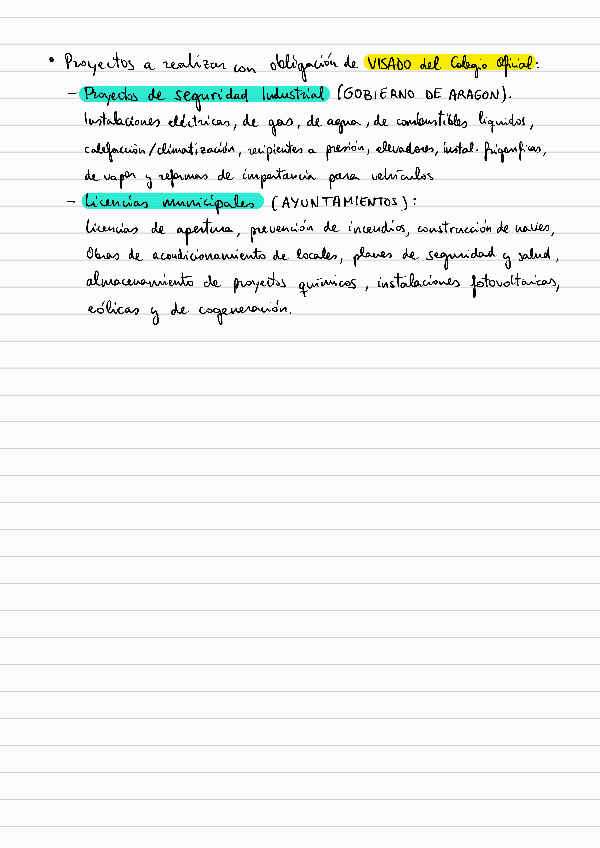 • Proyectos a realizar con obligación de VISADO del Colegio Oficial:
- Proyectos de seguridad Industrial (GOBIERNO DE ARAGON).
Instalaciones eléctricas, de gas, de agua, de combustibles líquidos,
calefacción/climatización, recipientes a presión, elevadores, instal. frigoríficas,
de vapor y reformas de importancia para vehículos
- Licencias municipales (AYUNTAMIENTOS):
Licencias de apertura, prevención de incendios, construcción de naves,
Obras de acondicionamiento de locales, planes de seguridad y salud,
almacenamiento de proyectos químicos, instalaciones fotovoltaicas,
eólicas y de cogeneración.